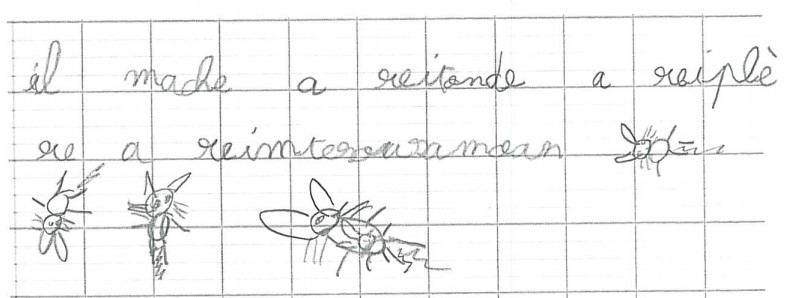 il mache a reitende a reiplè
re a reimterouramean